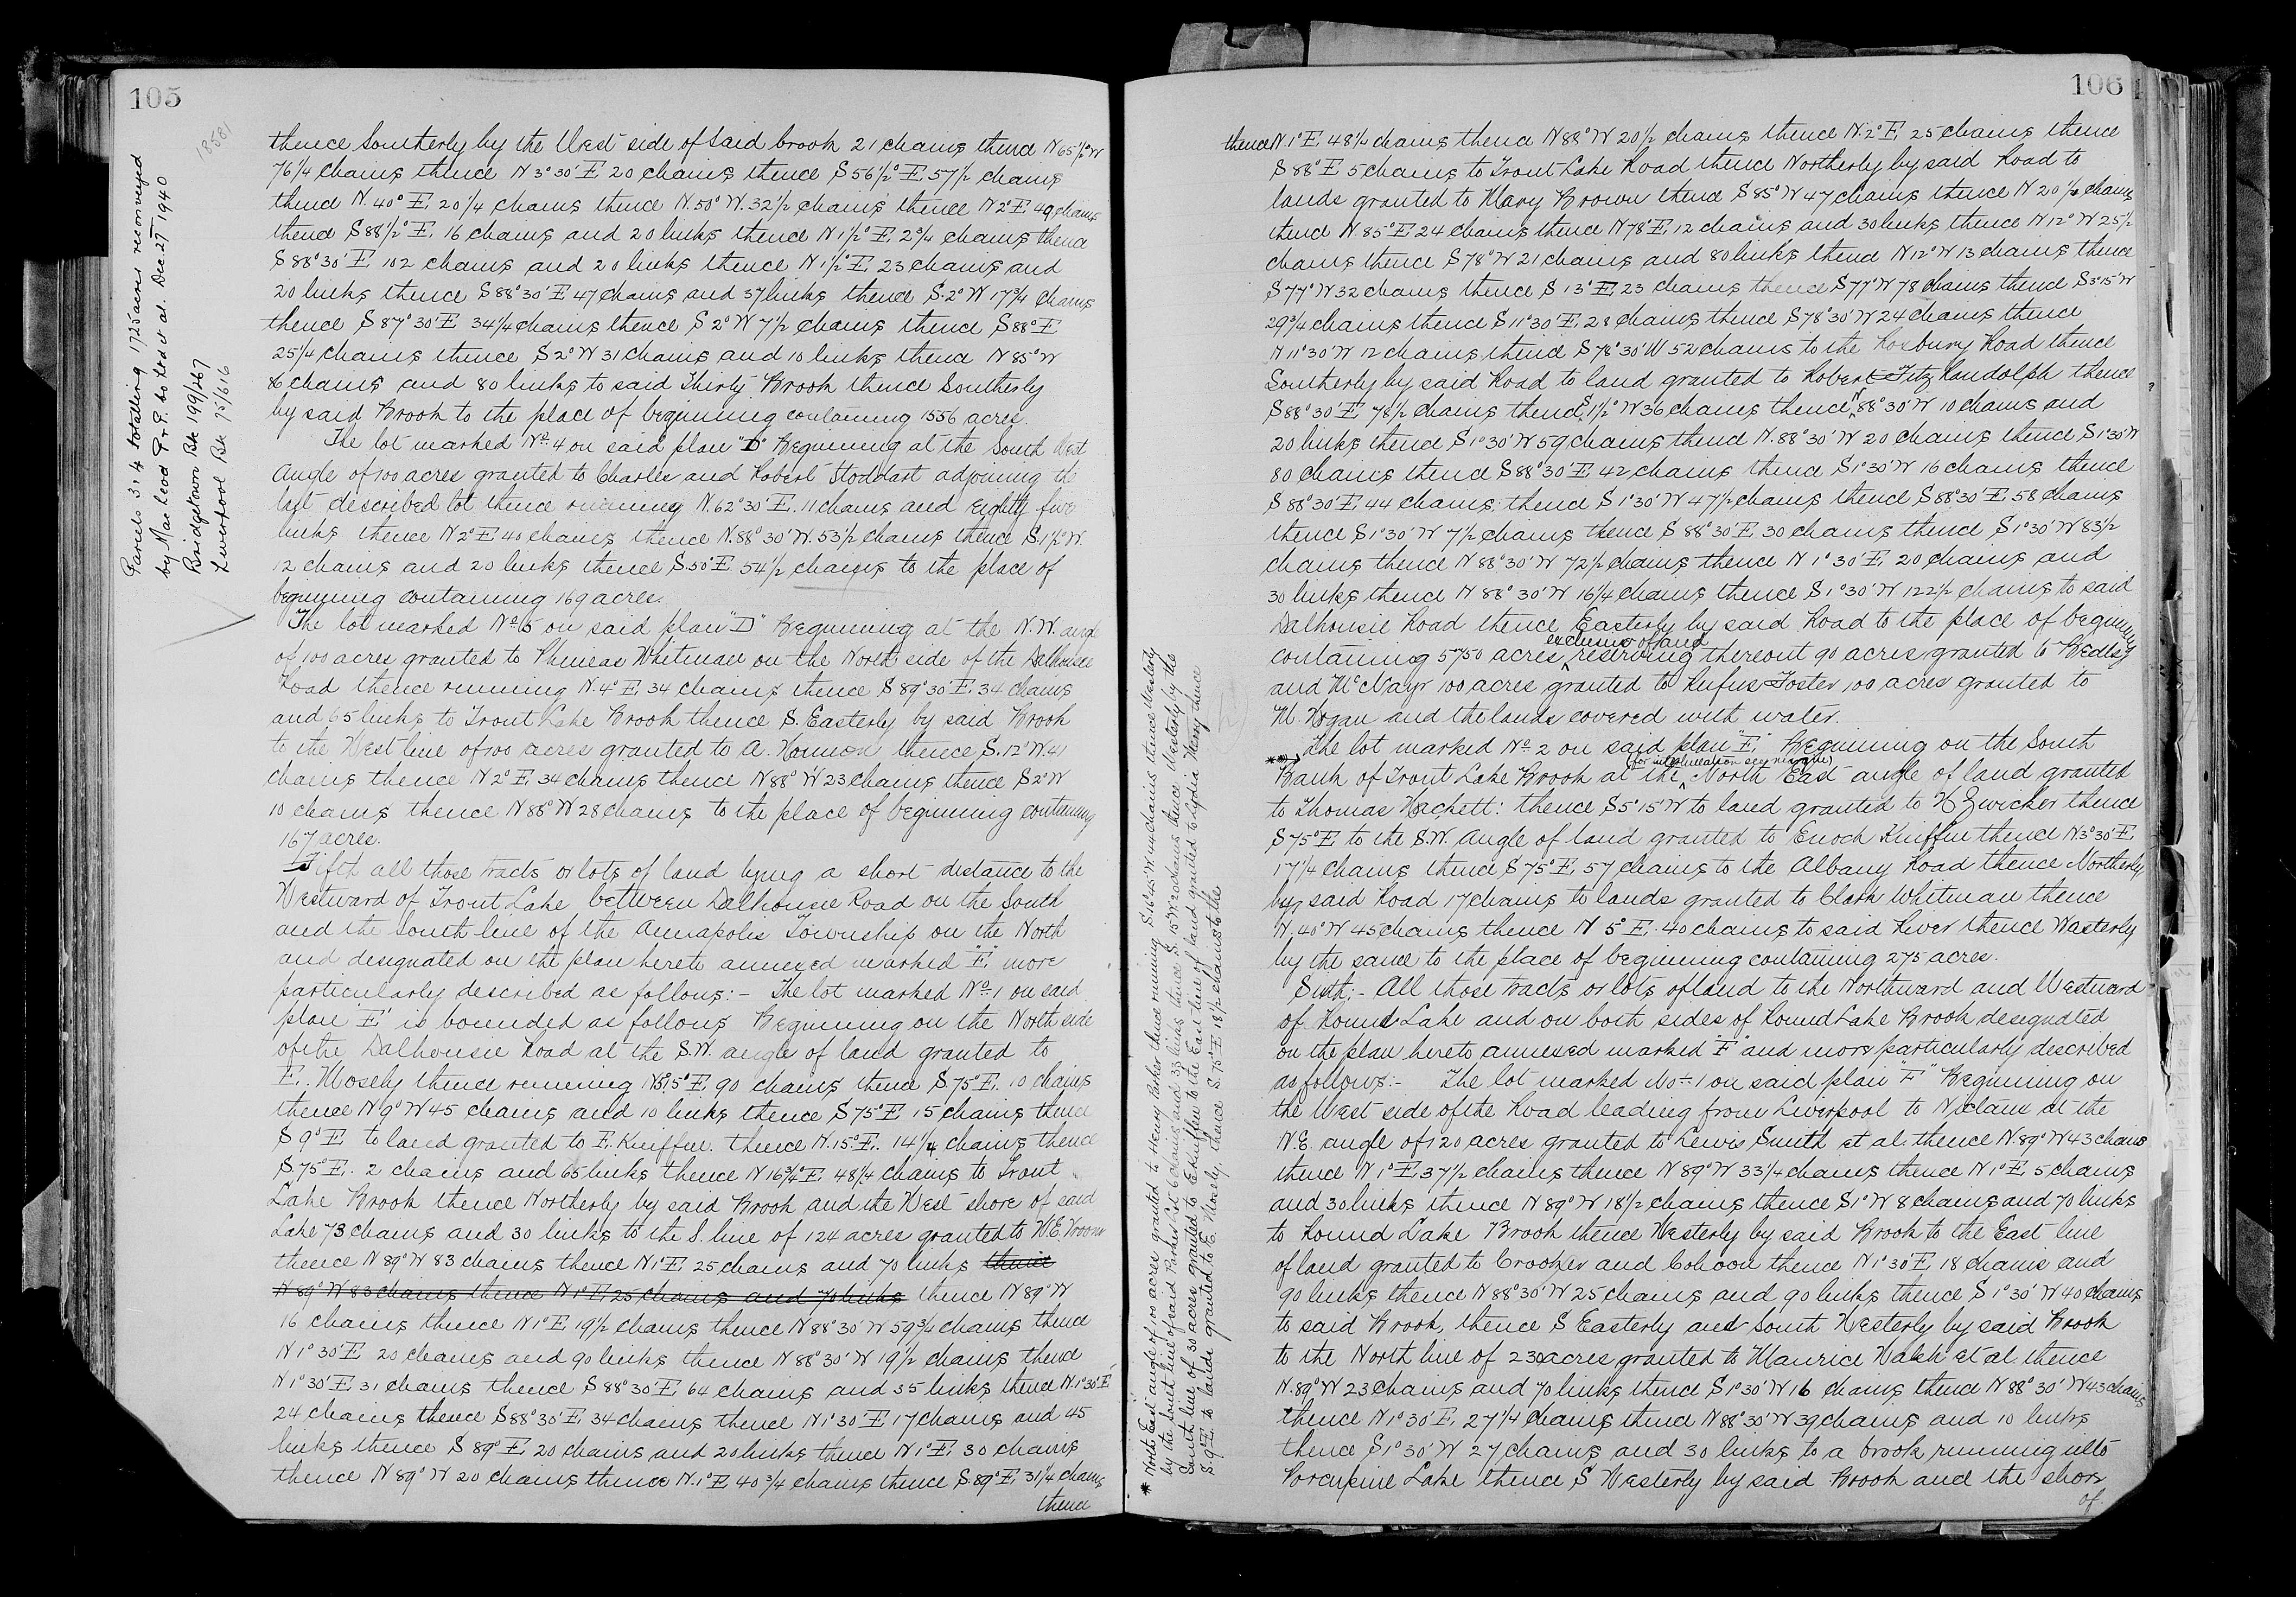 105
18581
Parcels 3 & 4 totalling 1725 acres reconveyed
by MacLeod P & P. to et al. Dec. 27th 1940
Bridgetown Bk 199/267
Liverpool Bk 95/616
thence Southerly by the West side of said brook 21 chains thence N 65½° W
76¼ chains thence N 3° 30' E 20 chains thence S 56½° E. 57½ chains
thence N. 40° E. 20¼ chains thence N. 50° W. 32½ chains thence N 2° E. 49 chains
thence S 88½° E. 16 chains and 20 links thence N 1½° E. 2¾ chains thence
S 88° 30' E 102 chains and 20 links thence N 1½° E. 23 chains and
20 links thence S 88° 30' E 47 chains and 37 links thence S. 2° W 17¾ chains
thence S 87° 30' E 34¼ chains thence S 2° W 7½ chains thence S 88° E
25¼ chains thence S 2° W 31 chains and 10 links thence N 85° W
86 chains and 80 links to said Thirty Brook thence Southerly
by said Brook to the place of beginning containing 1556 acres.
The lot marked No. 4 on said plan "D" Beginning at the South West
Angle of 100 acres granted to Charles and Robert Stoddart adjoining the
last described lot thence running N. 62° 30' E. 11 chains and Eighty five
links thence N 2° E 40 chains thence N. 88° 30' W. 53½ chains thence S. 1½° W.
12 chains and 20 links thence S. 50° E. 54½ chains to the place of
beginning containing 169 acres.
The lot marked No. 5 on said plan "D" Beginning at the N.W. angle
of 100 acres granted to Phineas Whitman on the North side of the Dalhousie
Road thence running N. 4° E. 34 chains thence S 89° 30' E. 34 chains
and 65 links to Trout Lake Brook thence S. Easterly by said Brook
to the West line of 100 acres granted to A. Hannon thence S. 12° W. 41
chains thence N 2° E. 34 chains thence N 88° W 23 chains thence S 2° W
10 chains thence N 88° W 28 chains to the place of beginning containing
167 acres.
Fifth all those tracts or lots of land lying a short distance to the
Westward of Trout Lake between Dalhousie Road on the South
and the South line of the Annapolis Township on the North
and designated on the plan hereto annexed marked "E" more
particularly described as follows:- The lot marked No. 1 on said
plan "E" is bounded as follows Beginning on the North side
of the Dalhousie Road at the S.W. angle of land granted to
E. Mosely thence running N 15° E. 90 chains thence S. 75° E. 10 chains
thence N 9° W 45 chains and 10 links thence S 75° E 15 chains thence
S 9° E to land granted to E. Kniffen. thence N. 15° E. 14¼ chains thence
S. 75° E. 2 chains and 65 links thence N 16¾° E. 48¼ chains to Trout
Lake Brook thence Northerly by said Brook and the West shore of said
Lake 73 chains and 30 links to the S. line of 124 acres granted to W.E. Vroom
thence N 89° W 83 chains thence N 1° E. 25 chains and 70 links thence
N 89° W 83 chains thence N 1° E 25 chains and 70 links thence N 89° W
16 chains thence N 1° E 19½ chains thence N 88° 30' W 59¾ chains thence
N 1° 30' E 20 chains and 90 links thence N 88° 30' W 19½ chains thence
N 1° 30' E 31 chains thence S 88° 30' E 64 chains and 35 links thence N. 1° 30' E
24 chains thence S 88° 30' E 34 chains thence N 1° 30' E 17 chains and 45
links thence S 89° E. 20 chains and 20 links thence N 1° E. 30 chains
thence N 89° W 20 chains thence N. 1° E 40¾ chains thence S. 89° E. 31¼ chains
thence
106
thence N. 1° E. 48¼ chains thence N 88° W 20½ chains thence N. 2° E. 25 chains thence
S 88° E 5 chains to Trout Lake Road thence Northerly by said Road to
lands granted to Mary Brown thence S 85° W 47 chains thence N 20¼ chains
thence N. 85° E 24 chains thence N 78° E. 12 chains and 30 links thence N 12° W 25½
chains thence S 78° W 21 chains and 80 links thence N 12° W 13 chains thence
S 77° W 32 chains thence S 13° E. 23 chains thence S 77° W 78 chains thence S 3° 15' W
29¾ chains thence S 11° 30' E. 28 chains thence S 78° 30' W 24 chains thence
N 11° 30' W 12 chains thence S 78° 30' W 52 chains to the Roxbury Road thence
Southerly by said Road to land granted to Robert Fitz Randolph thence
S 88° 30' E. 78½ chains thence S. 1½° W 36 chains thence N 88° 30' W 10 chains and
20 links thence S 1° 30' W 59 chains thence N. 88° 30' W 20 chains thence S 1° 30' W
80 chains thence S 88° 30' E. 42 chains thence S 1° 30' W 16 chains thence
S 88° 30' E. 44 chains; thence S 1° 30' W 47½ chains thence S 88° 30' E. 58 chains
thence S 1° 30' W 7½ chains thence S 88° 30' E. 30 chains thence S 1° 30' W 83½
chains thence N 88° 30' W 72½ chains thence N 1° 30' E. 20 chains and
30 links thence N 88° 30' W 16¼ chains thence S 1° 30' W 122½ chains to said
Dalhousie Road thence Easterly by said Road to the place of beginning
exclusive of and
containing 5750 acres reserving thereout 90 acres granted to Medley
and McNayr 100 acres granted to Rufus Foster 100 acres granted to
M. Hogan and the lands covered with water.
The lot marked No. 2 on said plan "E" Beginning on the South
(for interlineation see margin)
Bank of Trout Lake Brook at the North East angle of land granted
to Thomas Hackett: thence S 5° 15' W to land granted to H Zwicker thence
S 75° E to the S.W. Angle of land granted to Enoch Kniffin thence N. 3° 30' E.
17¼ chains thence S 75° E. 57 chains to the Albany Road thence Northerly
by said Road 17 chains to lands granted to Clark Whitman thence
N. 40° W 45 chains thence N 5° E. 40 chains to said River thence Westerly
by the same to the place of beginning containing 275 acres.
Sixth:- All those tracts or lots of land to the Northward and Westward
of Round Lake and on both sides of Round Lake Brook designated
on the plan hereto annexed marked "F" and more particularly described
as follows:- The lot marked No. 1 on said plan "F" Beginning on
the West side of the Road leading from Liverpool to Nictaux at the
N.E. angle of 120 acres granted to Lewis Smith et al. thence N. 89° W 43 chains
thence N. 1° E. 37½ chains thence N 89° W 33¼ chains thence N 1° E. 5 chains
and 30 links thence N 89° W 18½ chains thence S 1° W 8 chains and 70 links
to Round Lake Brook thence Westerly by said Brook to the East line
of land granted to Crooker and Cohoon thence N 1° 30' E. 18 chains and
90 links thence N 88° 30' W 25 chains and 90 links thence S 1° 30' W 40 chains
to said Brook, thence S Easterly and South Westerly by said Brook
to the North line of 230 acres granted to Maurice Walsh et al thence
N. 89° W 23 chains and 70 links thence S 1° 30' W 16 chains thence N 88° 30' W 43 chains
thence N 1° 30' E. 27¼ chains thence N 88° 30' W 39 chains and 10 links
thence S 1° 30' W 27 chains and 30 links to a brook running into
Porcupine Lake thence S Westerly by said Brook and the shore
of
* North East angle of 100 acres granted to Henry Parker thence running S 16° 45' W. 44 chains thence Westerly
by the South line of said Parker lot 6 chains and 35 links thence S. 15° W 20 chains thence Westerly by the
South line of 30 acres granted to E Kniffin to the East line of land granted to Lydia Henry thence
S. 9° E to lands granted to E. Mosely thence S. 75° E 18½ chains to the